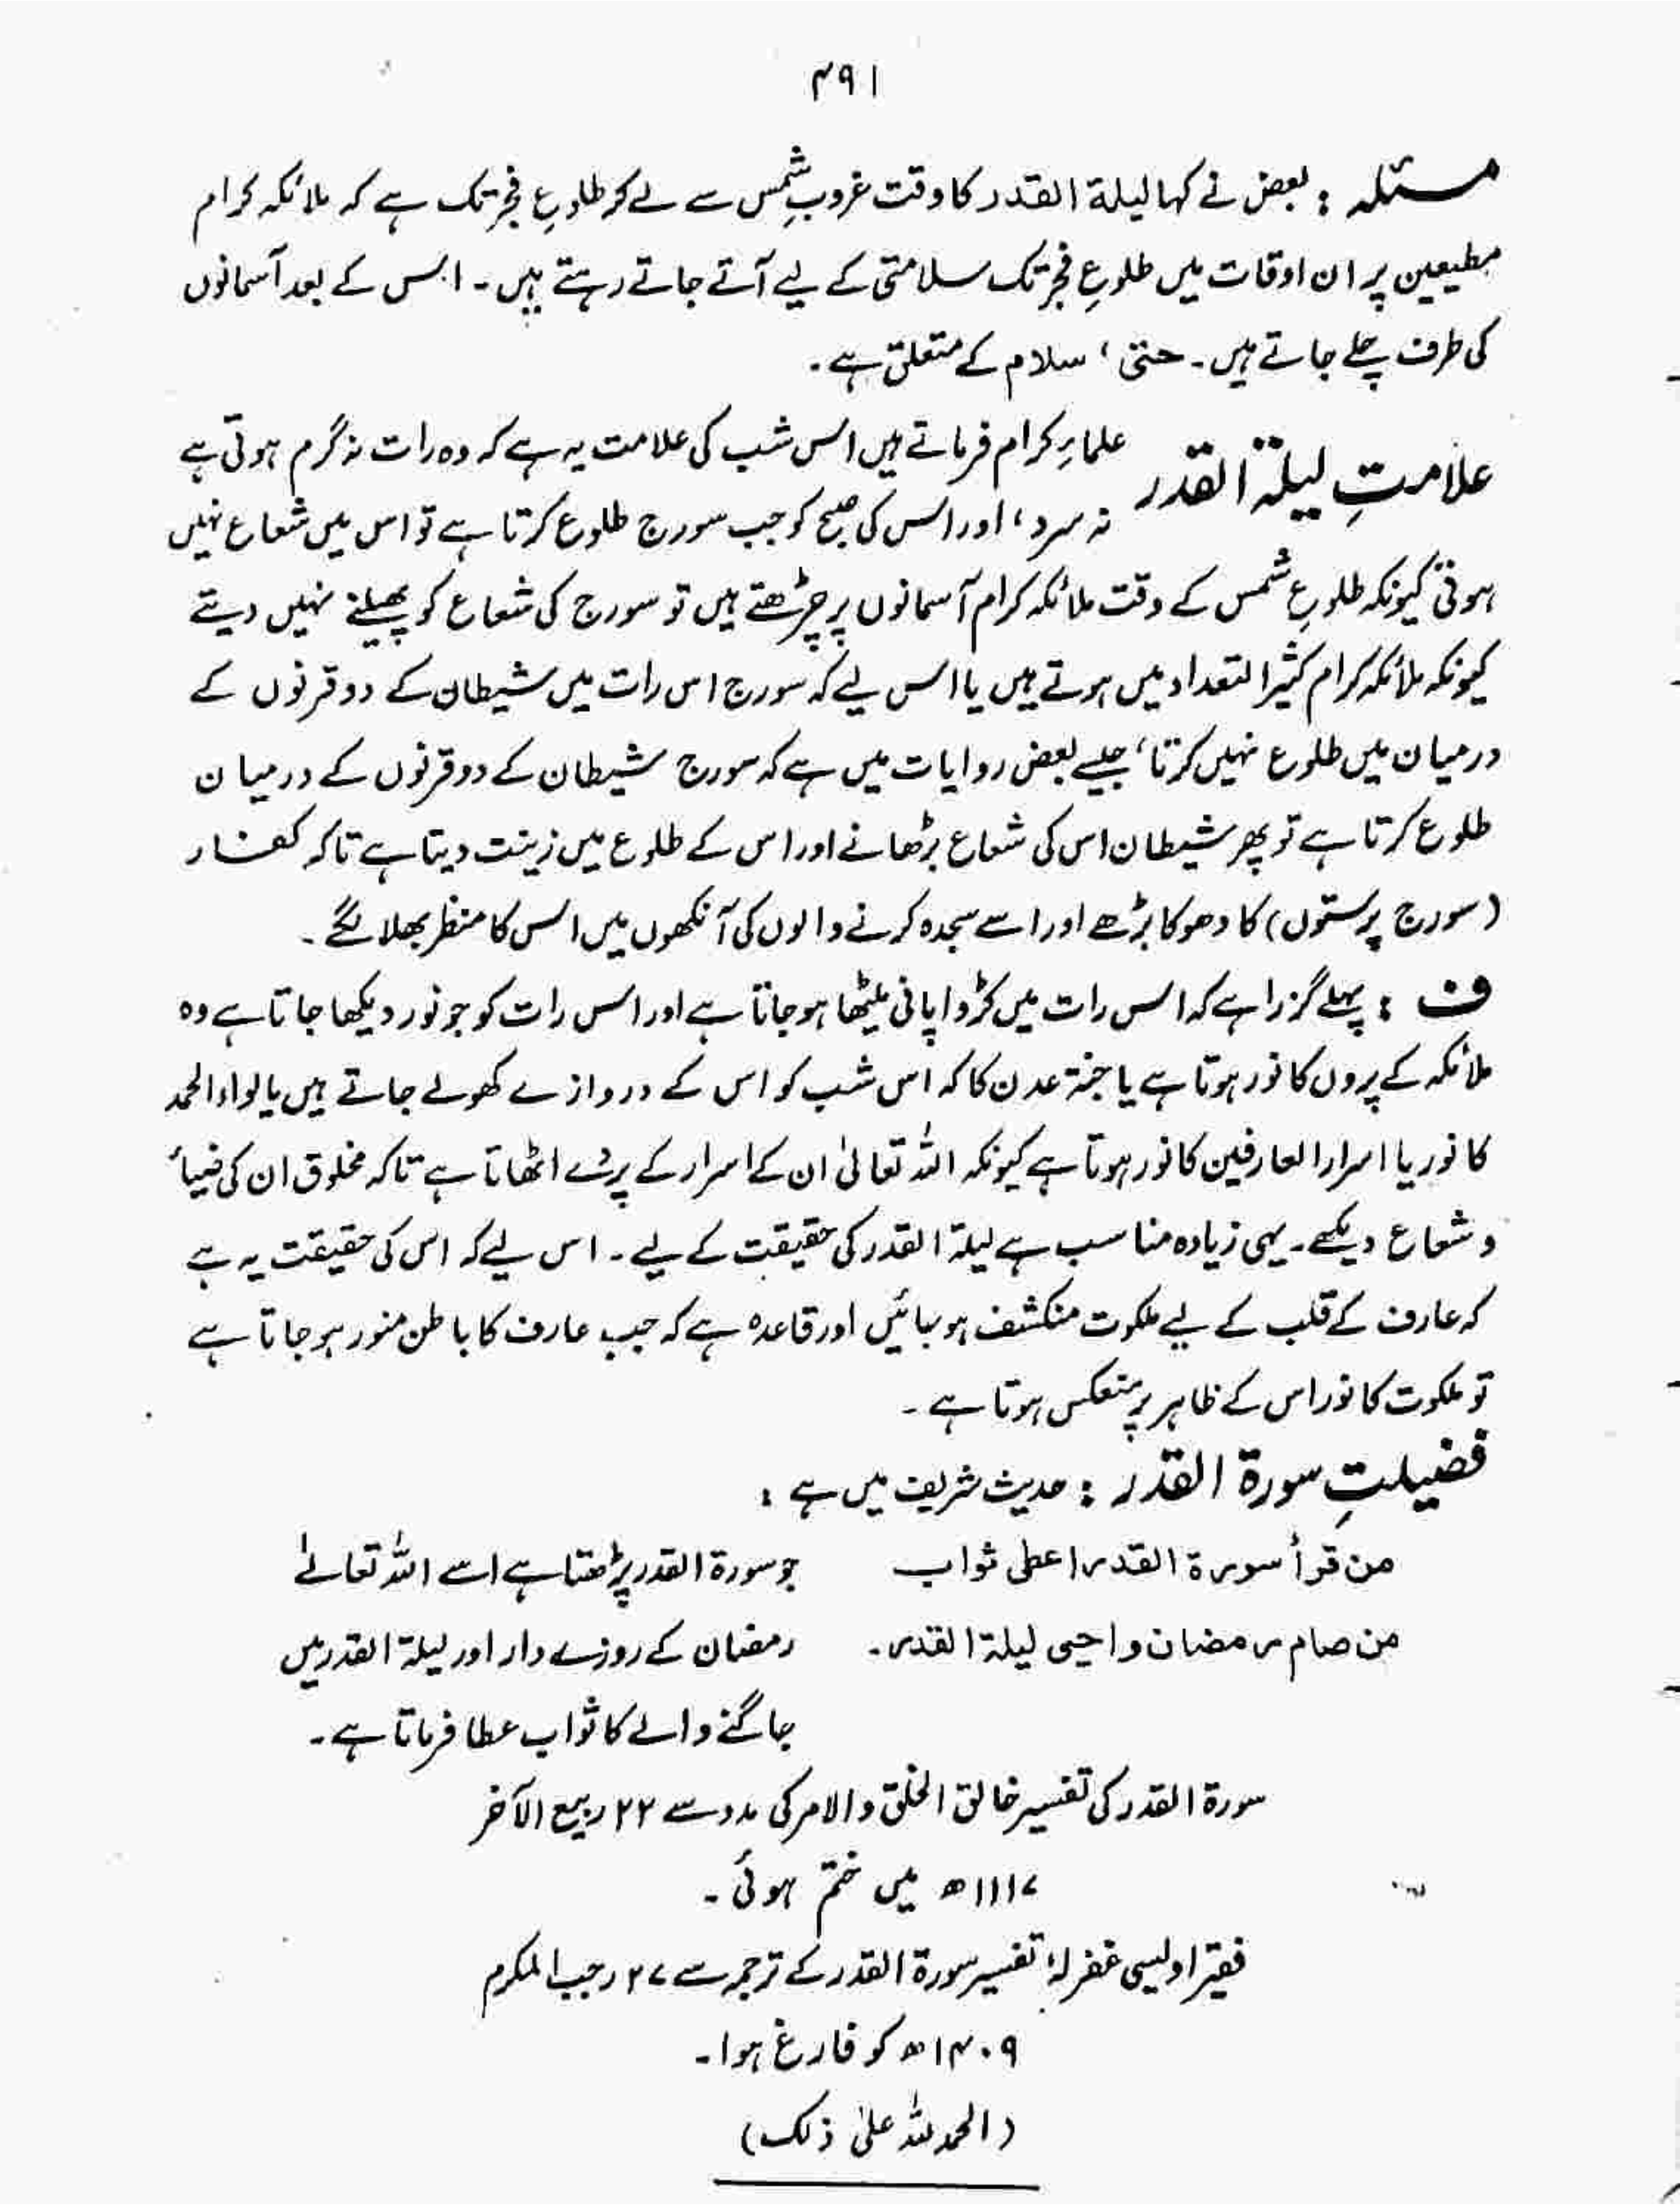 ۴۹۱
مسئلہ : بعض نے کہا لیلۃ القدر کا وقت غروبِ شمس سے لے کر طلوعِ فجر تک ہے کہ ملائکہ کرام
مطیعین پر ان اوقات میں طلوعِ فجر تک سلامتی کے لیے آتے جاتے رہتے ہیں۔ اس کے بعد آسمانوں
کی طرف چلے جاتے ہیں۔ حتیٰ ، سلام کے متعلق ہے۔
علامتِ لیلۃ القدر علماءِ کرام فرماتے ہیں اس شب کی علامت یہ ہے کہ وہ رات نہ گرم ہوتی ہے
نہ سرد ، اور اس کی صبح کو جب سورج طلوع کرتا ہے تو اس میں شعاع نہیں
ہوتی کیونکہ طلوعِ شمس کے وقت ملائکہ کرام آسمانوں پر چڑھتے ہیں تو سورج کی شعاع کو پھیلنے نہیں دیتے
کیونکہ ملائکہ کرام کثیر التعداد میں ہوتے ہیں یا اس لیے کہ سورج اس رات میں شیطان کے دو قرنوں کے
درمیان میں طلوع نہیں کرتا ، جیسے بعض روایات میں ہے کہ سورج شیطان کے دو قرنوں کے درمیان
طلوع کرتا ہے تو پھر شیطان اس کی شعاع بڑھانے اور اس کے طلوع میں زینت دیتا ہے تاکہ کفار
(سورج پرستوں) کا دھوکا بڑھے اور اسے سجدہ کرنے والوں کی آنکھوں میں اس کا منظر بھلا لگے۔
ف : پہلے گزرا ہے کہ اس رات میں کڑوا پانی میٹھا ہو جاتا ہے اور اس رات کو جو نور دیکھا جاتا ہے وہ
ملائکہ کے پروں کا نور ہوتا ہے یا جنۃ عدن کا کہ اس شب کو اس کے دروازے کھولے جاتے ہیں یا لواء الحمد
کا نور یا اسرار العارفین کا نور ہوتا ہے کیونکہ اللہ تعالیٰ ان کے اسرار کے پردے اٹھاتا ہے تاکہ مخلوق ان کی ضیاء
و شعاع دیکھے۔ یہی زیادہ مناسب ہے لیلۃ القدر کی حقیقت کے لیے۔ اس لیے کہ اس کی حقیقت یہ ہے
کہ عارف کے قلب کے لیے ملکوت منکشف ہو جائیں اور قاعدہ ہے کہ جب عارف کا باطن منور ہو جاتا ہے
تو ملکوت کا نور اس کے ظاہر پر منعکس ہوتا ہے۔
فضیلتِ سورۃ القدر : حدیث شریف میں ہے :
من قرأ سورۃ القدر اعطی ثواب
من صام رمضان و احیی لیلۃ القدر۔
جو سورۃ القدر پڑھتا ہے اسے اللہ تعالےٰ
رمضان کے روزے دار اور لیلۃ القدر میں
جاگنے والے کا ثواب عطا فرماتا ہے۔
سورۃ القدر کی تفسیر خالق الخلق والامر کی مدد سے ۲۲ ربیع الآخر
۱۱۱۷ھ میں ختم ہوئی۔
فقیر اویسی غفرلہٗ تفسیر سورۃ القدر کے ترجمہ سے ۲۷ رجب المکرم
۱۴۰۹ھ کو فارغ ہوا۔
(الحمد للہ علیٰ ذلک)